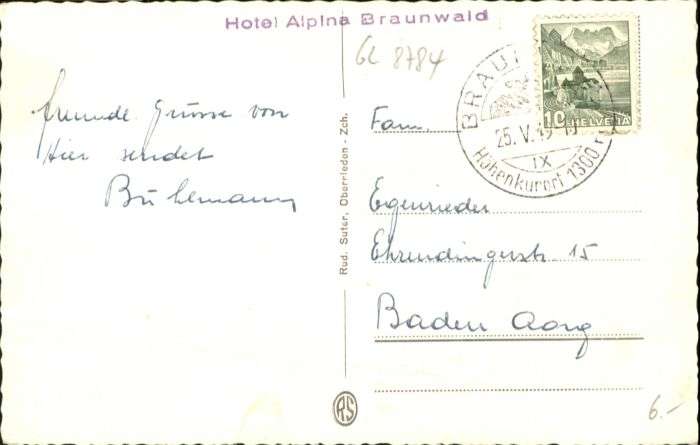 Hotel Alpina Braunwald
GL 8784
freunde. Grüsse von
Hier sendet
Bühlmann
Rud. Suter, Oberrieden - Zch.
RS
BRAU
25. V. 49
IX
Höhenkurort 1300 m
10 HELVETIA
Fam.
Egenrieder
Ehrendingerstr. 15
Baden Aarg
6.-